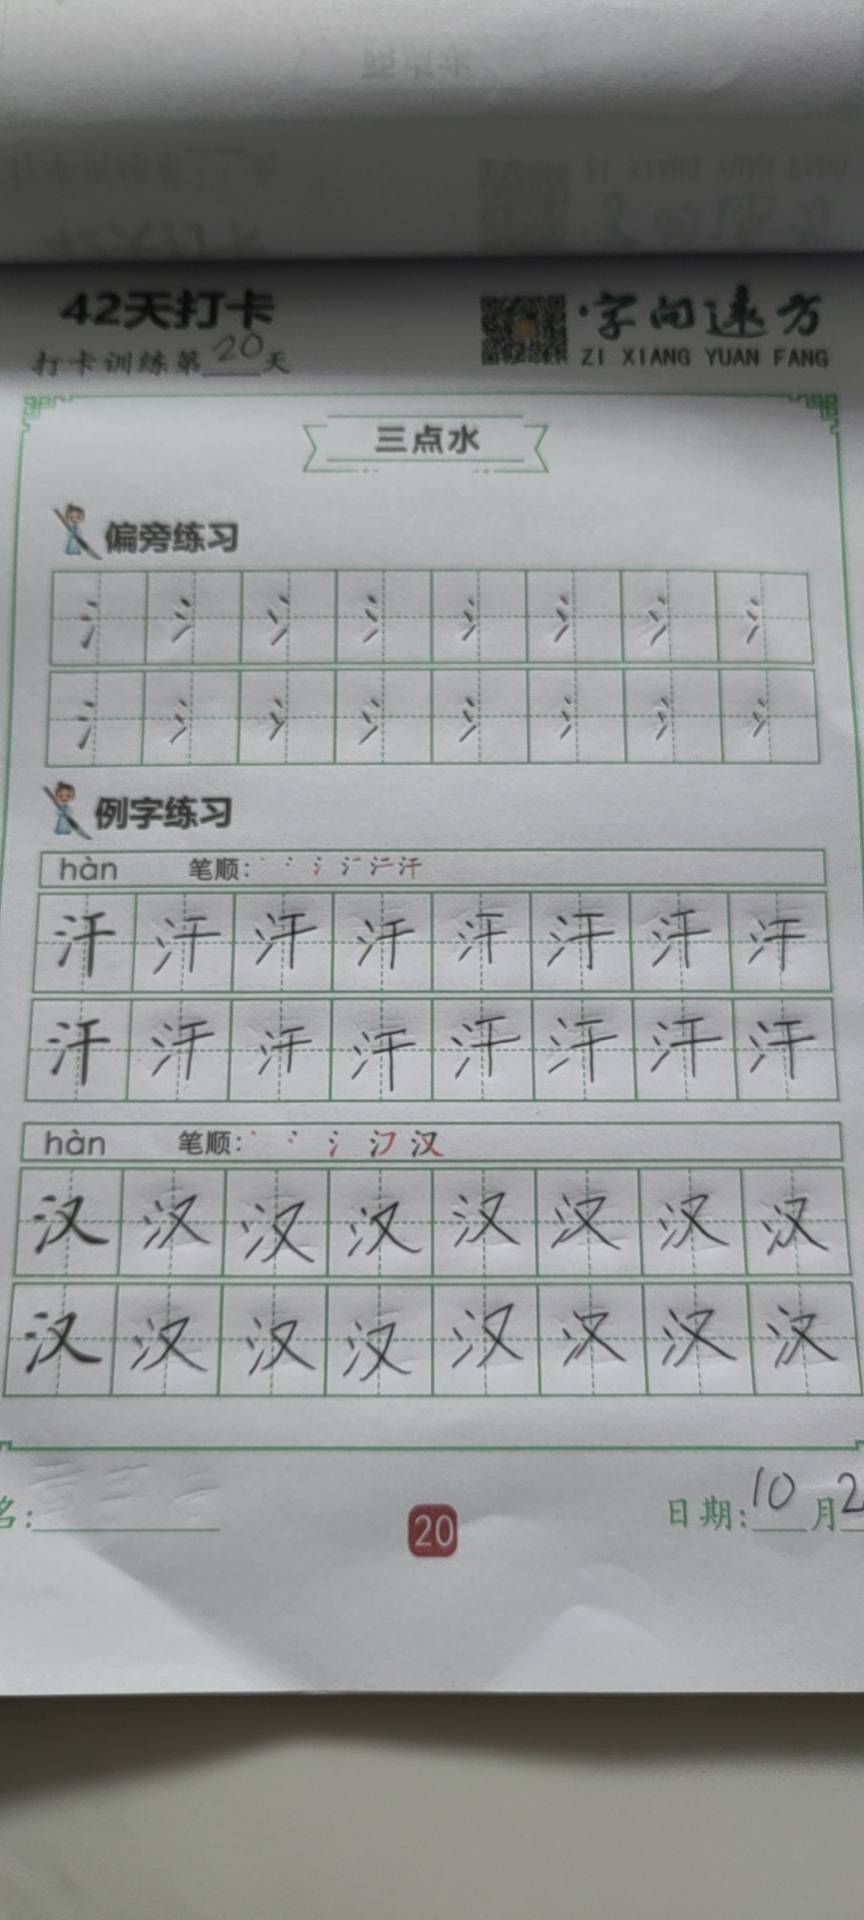 42天打卡
字向远方
打卡训练第20天
ZI XIANG YUAN FANG
三点水
偏旁练习
氵氵氵氵氵氵氵氵
氵氵氵氵氵氵氵氵
例字练习
hàn 笔顺:
汗汗汗汗汗汗汗汗
汗汗汗汗汗汗汗汗
hàn 笔顺: 汉
汉汉汉汉汉汉汉汉
汉汉汉汉汉汉汉汉
名:
20
日期:10月2